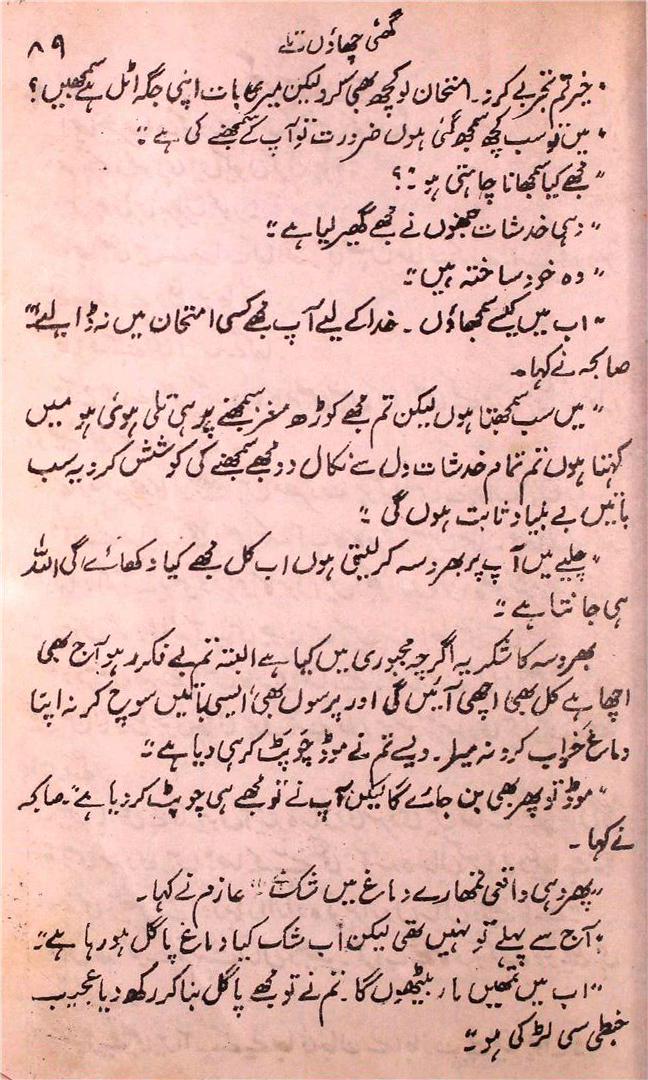 گھنی چھاؤں تلے
۸۹
"خیر تم تجربے کرو۔ امتحان لو کچھ بھی کرو لیکن میری بات اپنی جگہ اٹل ہے سمجھیں؟
"میں تو سب کچھ سمجھ گئی ہوں ضرورت تو آپ کے سمجھنے کی ہے"
"مجھے کیا سمجھانا چاہتی ہو"؟
"وہی خدشات جنھوں نے مجھے گھیر لیا ہے"
"وہ خود ساختہ ہیں"
"اب میں کیسے سمجھاؤں ۔ خدا کے لیے آپ مجھے کسی امتحان میں نہ ڈالیے"
صابحہ نے کہا۔
"میں سب سمجھتا ہوں لیکن تم مجھے کوڑھ مغز سمجھنے پر ہی تلی ہوئی ہو میں
کہتا ہوں تم تمام خدشات دل سے نکال دو مجھے سمجھنے کی کوشش کرو یہ سب
باتیں بے بنیاد ثابت ہوں گی"
"چلیے میں آپ پر بھروسہ کر لیتی ہوں اب کل مجھے کیا دکھائے گی اللہ
ہی جانتا ہے"
بھروسہ کا شکریہ اگرچہ مجبوری میں کیا ہے البتہ تم بے فکر رہو آج بھی
اچھا ہے کل بھی اچھی آئیں گی اور پرسوں بھی، ایسی باتیں سوچ کر نہ اپنا
دماغ خراب کرو نہ میرا۔ ویسے تم نے موڈ چوپٹ کر ہی دیا ہے"
"موڈ تو پھر بھی بن جائے گا لیکن آپ نے تو مجھے ہی چوپٹ کر دیا ہے"۔ صابحہ
نے کہا۔
"پھر وہی واقعی تمھارے دماغ میں شک" عازم نے کہا۔
"آج سے پہلے تو نہیں تھی لیکن اب شک کیا دماغ پاگل ہو رہا ہے"
"اب میں تمھیں مار بیٹھوں گا۔ تم نے تو مجھے پاگل بنا کر رکھ دیا عجیب
خبطی سی لڑکی ہو"